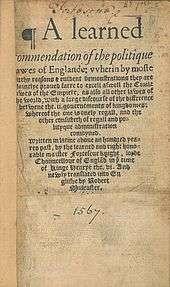 ¶ A learned
commendation of the politique
lawes of Englande: vvherin by moste
pitthy reasons & euident demonstrations they are
plainelye proued farre to excell aswell the Ciuile
lawes of the Empiere, as also all other lawes of
the world, with a large discourse of the difference
betwene the. ii. gouernements of kingdomes:
whereof the one is onely regall, and the
other consisteth of regall and po-
lityque administration
conioyned.
Written in latine aboue an hundred yeares
past, by the learned and right honou-
rable maister Fortescue knight, lorde
Chauncellour of Englād in yͤ time
of Kinge Henrye the. vi. And
newly translated into En-
glishe by Robert
Mulcaster.
1567